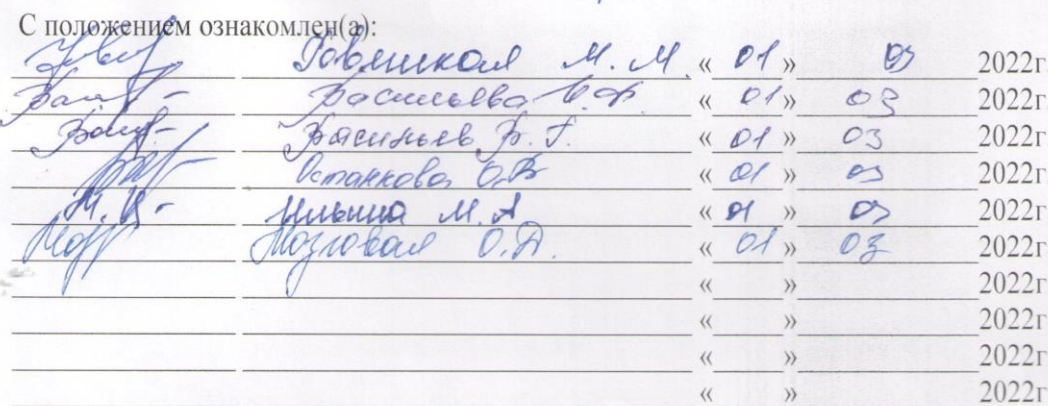 С положением ознакомлен(а):
М. М. « 01 » 03 2022г
Васильева « 01 » 03 2022г
Васильев В. Г. « 01 » 03 2022г
Останкова О.В « 01 » 03 2022г
Ильина М. А « 01 » 03 2022г
Мозговая О.Д. « 01 » 03 2022г
« » 2022г
« » 2022г
« » 2022г
« » 2022г